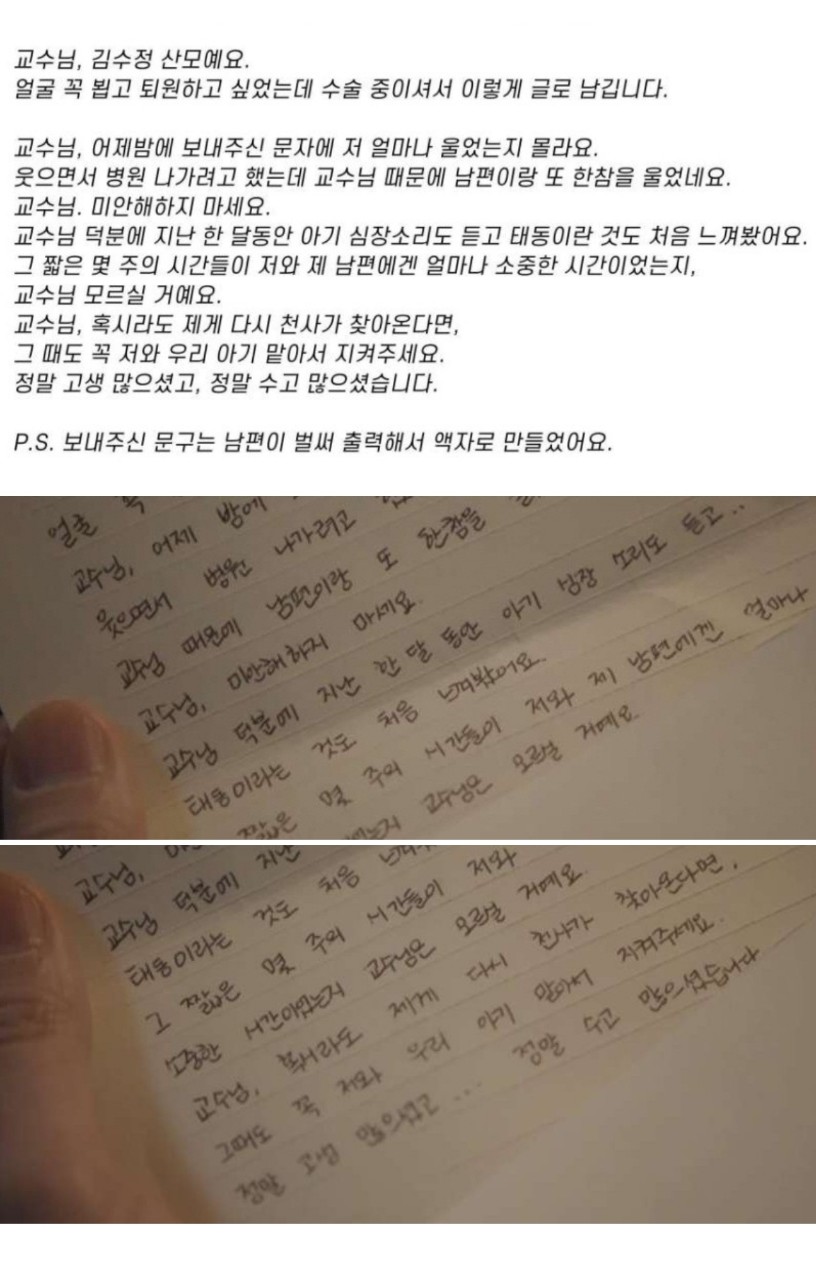 교수님, 김수정 산모예요.
얼굴 꼭 뵙고 퇴원하고 싶었는데 수술 중이셔서 이렇게 글로 남깁니다.
교수님, 어제밤에 보내주신 문자에 저 얼마나 울었는지 몰라요.
웃으면서 병원 나가려고 했는데 교수님 때문에 남편이랑 또 한참을 울었네요.
교수님. 미안해하지 마세요.
교수님 덕분에 지난 한 달동안 아기 심장소리도 듣고 태동이란 것도 처음 느껴봤어요.
그 짧은 몇 주의 시간들이 저와 제 남편에겐 얼마나 소중한 시간이었는지,
교수님 모르실 거예요.
교수님, 혹시라도 제게 다시 천사가 찾아온다면,
그 때도 꼭 저와 우리 아기 맡아서 지켜주세요.
정말 고생 많으셨고, 정말 수고 많으셨습니다.
P.S. 보내주신 문구는 남편이 벌써 출력해서 액자로 만들었어요.
얼굴 꼭
교수님, 어제 밤에
웃으면서 병원 나가려고
교수님 때문에 남편이랑 또 한참을
교수님, 미안해하지 마세요.
교수님 덕분에 지난 한 달 동안 아기 심장 소리도 듣고..
태동이라는 것도 처음 느껴봤어요.
짧은 몇 주의 시간들이 저와 제 남편에겐 얼마나
교수님은 모르실 거예요.
교수님,
교수님 덕분에 지난
태동이라는 것도 처음
그 짧은 몇 주의 시간들이 저와
소중한 시간이었는지 교수님은 모르실 거예요.
교수님, 혹시라도 제게 다시 천사가 찾아온다면,
그때도 꼭 저와 우리 아기 맡아서 지켜주세요.
정말 고생 많으셨고... 정말 수고 많으셨습니다